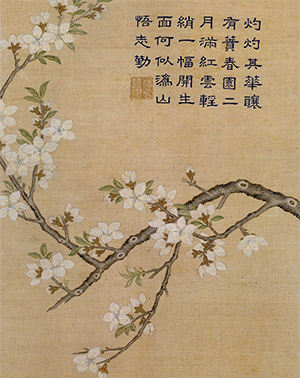 灼灼其華讓
有蕡春園二
月滿紅雲輕
綃一幅開生
面何似溈山
悟志勤